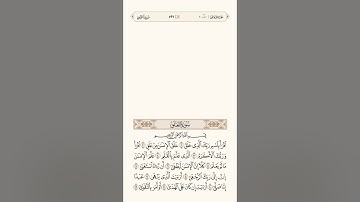 سُورَةُ العَلَقِ
بِسْمِ ٱللَّهِ ٱلرَّحْمَٰنِ ٱلرَّحِيمِ
ٱقْرَأْ بِٱسْمِ رَبِّكَ ٱلَّذِي خَلَقَ ١ خَلَقَ ٱلْإِنسَٰنَ مِنْ عَلَقٍ ٢ ٱقْرَأْ
وَرَبُّكَ ٱلْأَكْرَمُ ٣ ٱلَّذِي عَلَّمَ بِٱلْقَلَمِ ٤ عَلَّمَ ٱلْإِنسَٰنَ
مَا لَمْ يَعْلَمْ ٥ كَلَّآ إِنَّ ٱلْإِنسَٰنَ لَيَطْغَىٰٓ ٦ أَن رَّءَاهُ ٱسْتَغْنَىٰٓ ٧
إِنَّ إِلَىٰ رَبِّكَ ٱلرُّجْعَىٰٓ ٨ أَرَءَيْتَ ٱلَّذِي يَنْهَىٰ ٩ عَبْدًا
إِذَا صَلَّىٰٓ ١٠ أَرَءَيْتَ إِن كَانَ عَلَى ٱلْهُدَىٰٓ ١١ أَوْ أَمَرَ بِٱلتَّقْوَىٰٓ ١٢